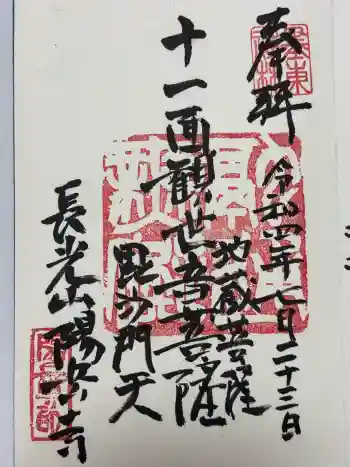 奉拝
令和四年七月二十三日
十一面観世音菩薩
地蔵菩薩
毘沙門天
長光山陽岳寺